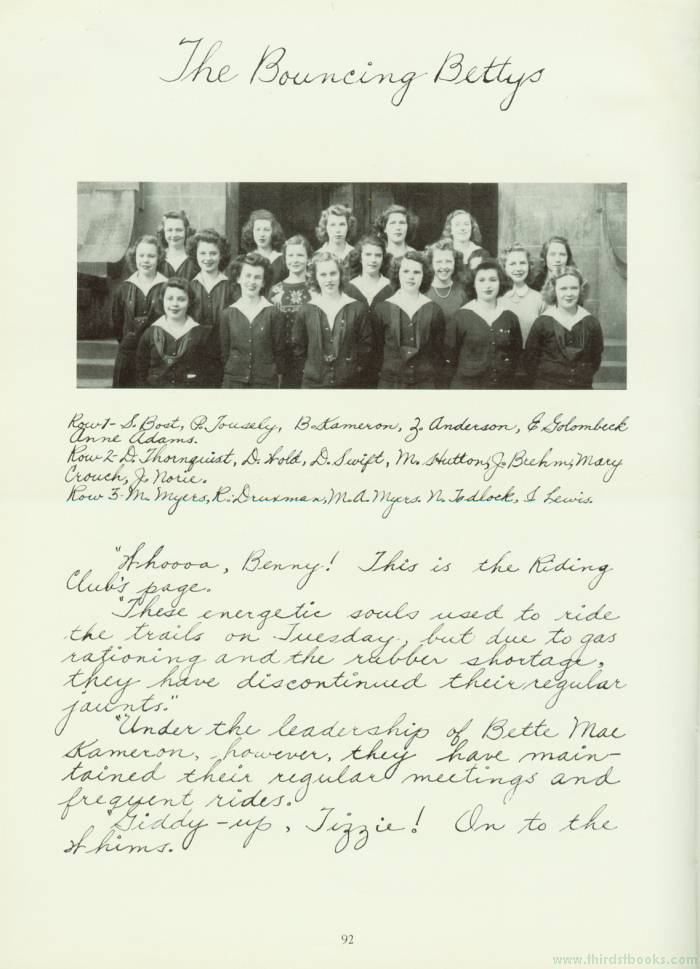 The Bouncing Bettys
Row 1- S. Bost, P. Tousely, B. Kameron, Z. Anderson, E. Golombeck
Anne Adams.
Row 2- D. Thornquist, D. Wold, D. Swift, M. Hutton, J. Brehm, Mary
Crouch, J. Norie.
Row 3- M. Myers, R. Druxman, M.A. Myers. N. Tadlock, I Lewis.
"Whoooa, Benny! This is the Riding
Club's page.
"These energetic souls used to ride
the trails on Tuesday, but due to gas
rationing and the rubber shortage,
they have discontinued their regular
jaunts."
"Under the leadership of Bette Mae
Kameron, however, they have main-
tained their regular meetings and
frequent rides.
"Giddy-up, Tizzie! On to the
Whims.
92
www.thirdstbooks.com